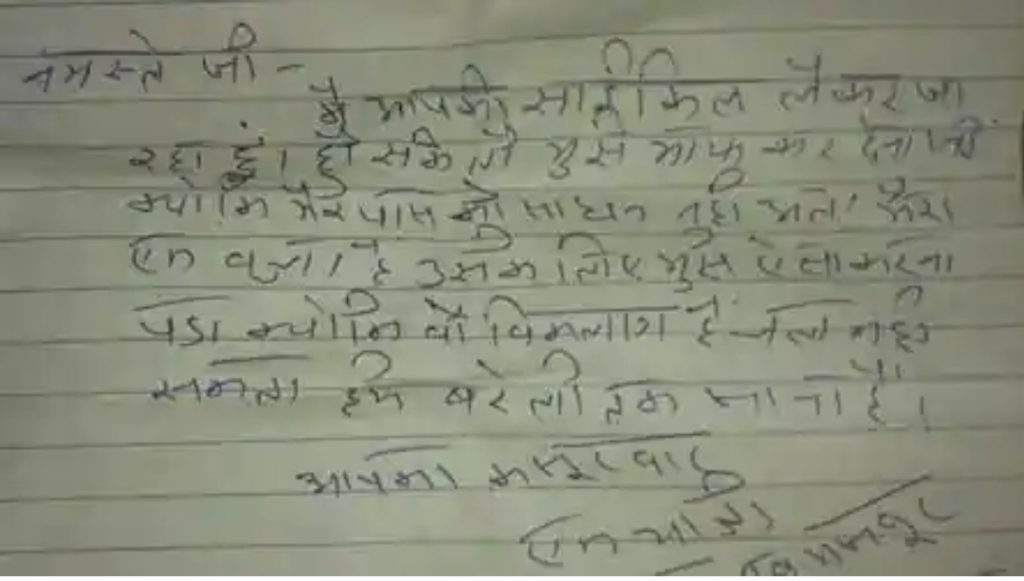 नमस्ते जी -
मैं आपकी साईकिल लेकर जा
रहा हूं। हो सके तो मुझे माफ कर देना जी
क्योंकि मेरे पास कोई साधन नहीं मेरा
एक बच्चा है उसके लिए मुझे ऐसा करना
पडा क्योंकि वो विकलांग है चल नहीं
सकता हमें बरेली तक जाना है।
आपका कसूरवार
एक यात्री
मजदूर